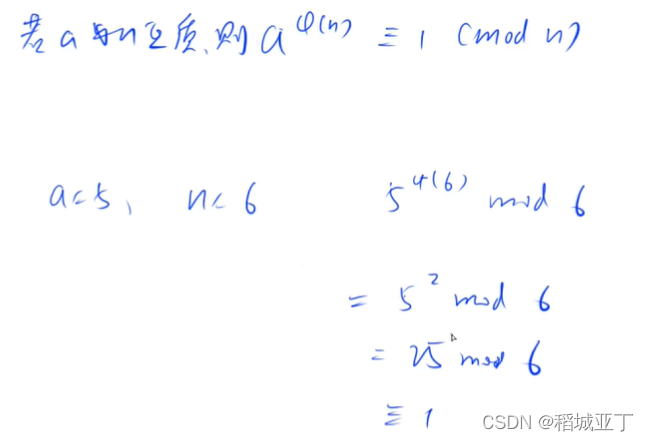 若a与n互质,则 a^φ(n) ≡ 1 (mod n)
a=5, n=6 5^φ(6) mod 6
= 5^2 mod 6
= 25 mod 6
≡ 1
CSDN @稻城亚丁